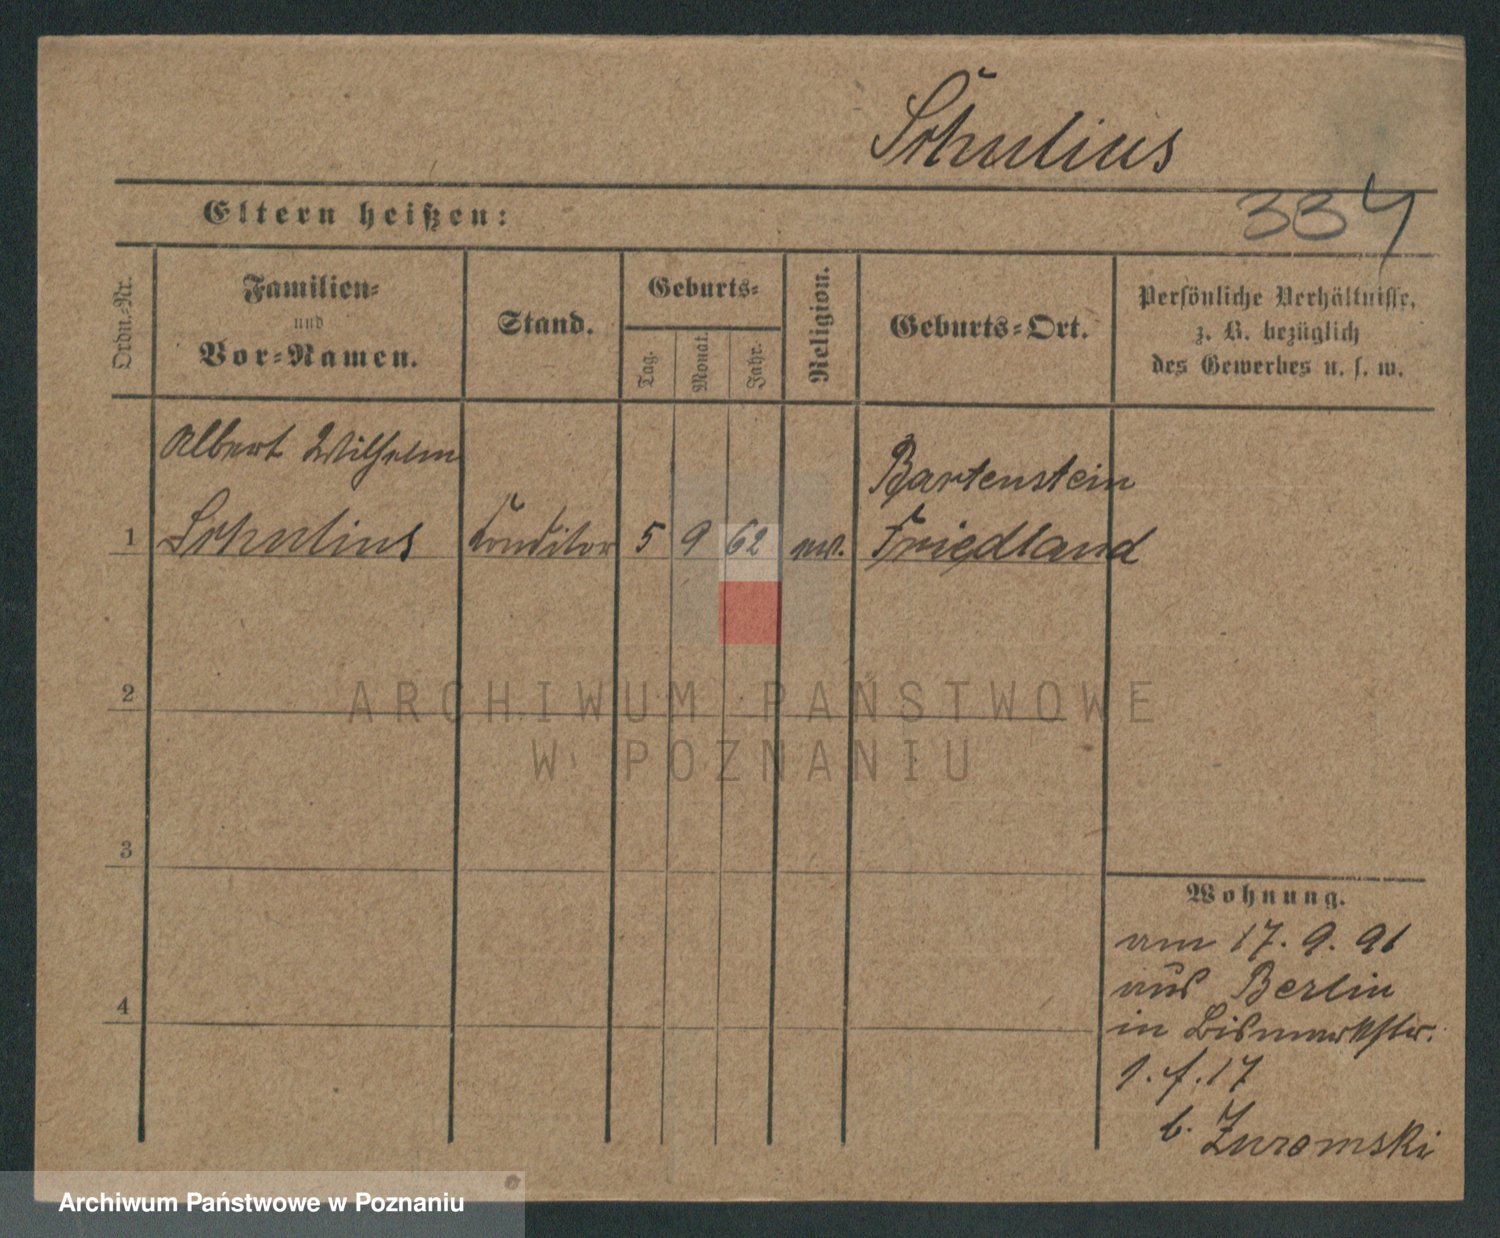 Schulius
334
Eltern heißen:
Ordn.-Nr.
Familien-
und
Vor-Namen.
Stand.
Geburts-
Tag.
Monat.
Jahr.
Religion.
Geburts-Ort.
Persönliche Verhältnisse,
z. B. bezüglich
des Gewerbes u. s. w.
Albert Wilhelm
Bartenstein
1 Schulius Conditor 5 9 62 ev. Friedland
2
ARCHIWUM PAŃSTWOWE
W POZNANIU
3
Wohnung.
am 17. 9. 91
aus Berlin
4
in Bismarkstr.
17
b. Zuromski
Archiwum Państwowe w Poznaniu